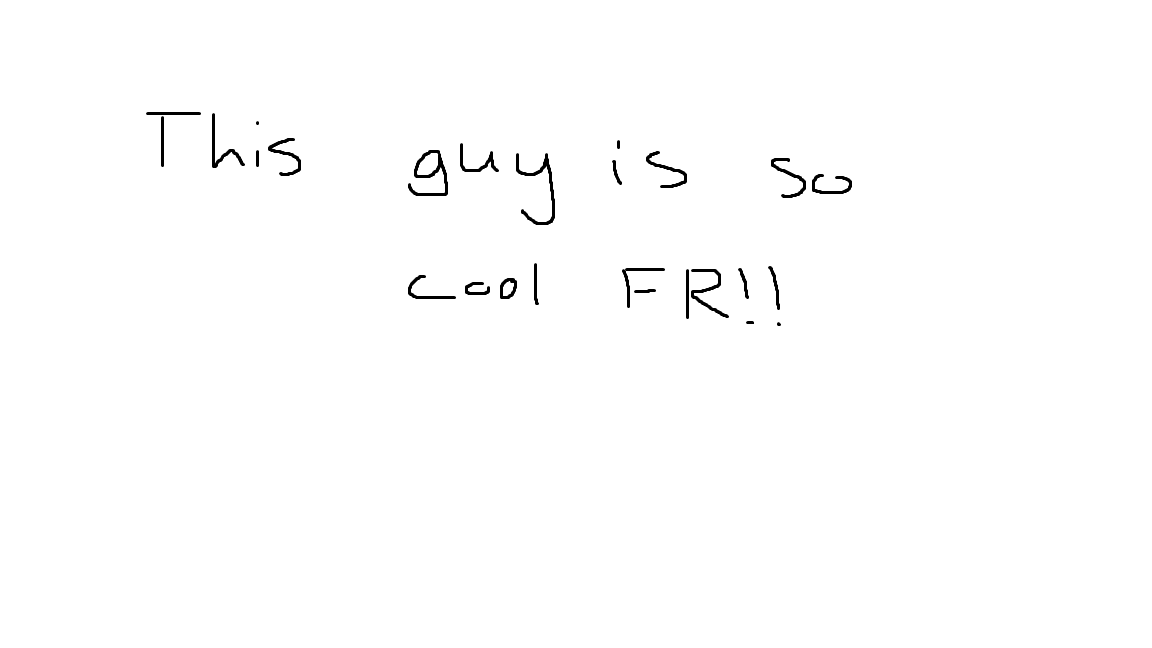 This guy is so
cool FR!!